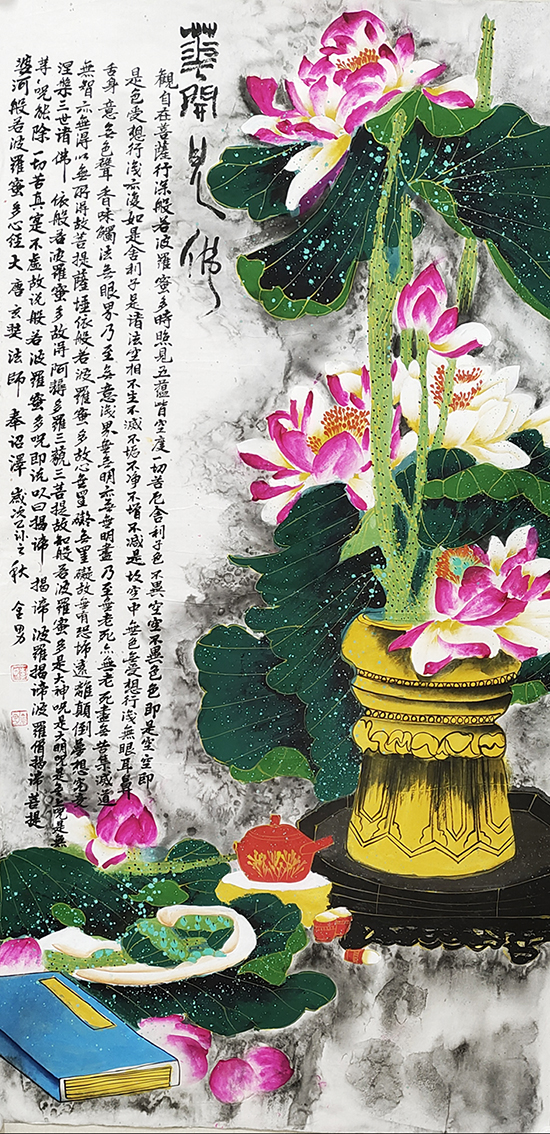 華開見佛
觀自在菩薩行深般若波羅蜜多時照見五蘊皆空度一切苦厄舍利子色不異空空不異色色即是空空即
是色受想行識亦復如是舍利子是諸法空相不生不滅不垢不净不增不减是故空中無色無受想行識無眼耳鼻
舌身意無色聲香味觸法無眼界乃至無意識界無無明亦無無明盡乃至無老死亦無老死盡無苦集滅道
無智亦無得以無所得故菩提薩埵依般若波羅蜜多故心無罣礙無罣礙故無有恐怖遠離顛倒夢想究竟
涅槃三世諸佛依般若波羅蜜多故得阿耨多羅三藐三菩提故知般若波羅蜜多是大神呪是大明呪是無上呪是無
等呪能除一切苦真實不虛故说般若波羅蜜多呪即说呪曰揭諦揭諦波羅揭諦波羅僧揭諦菩提
娑河般若波羅蜜多心经大唐玄奘法師奉诏譯歲次之秋全男